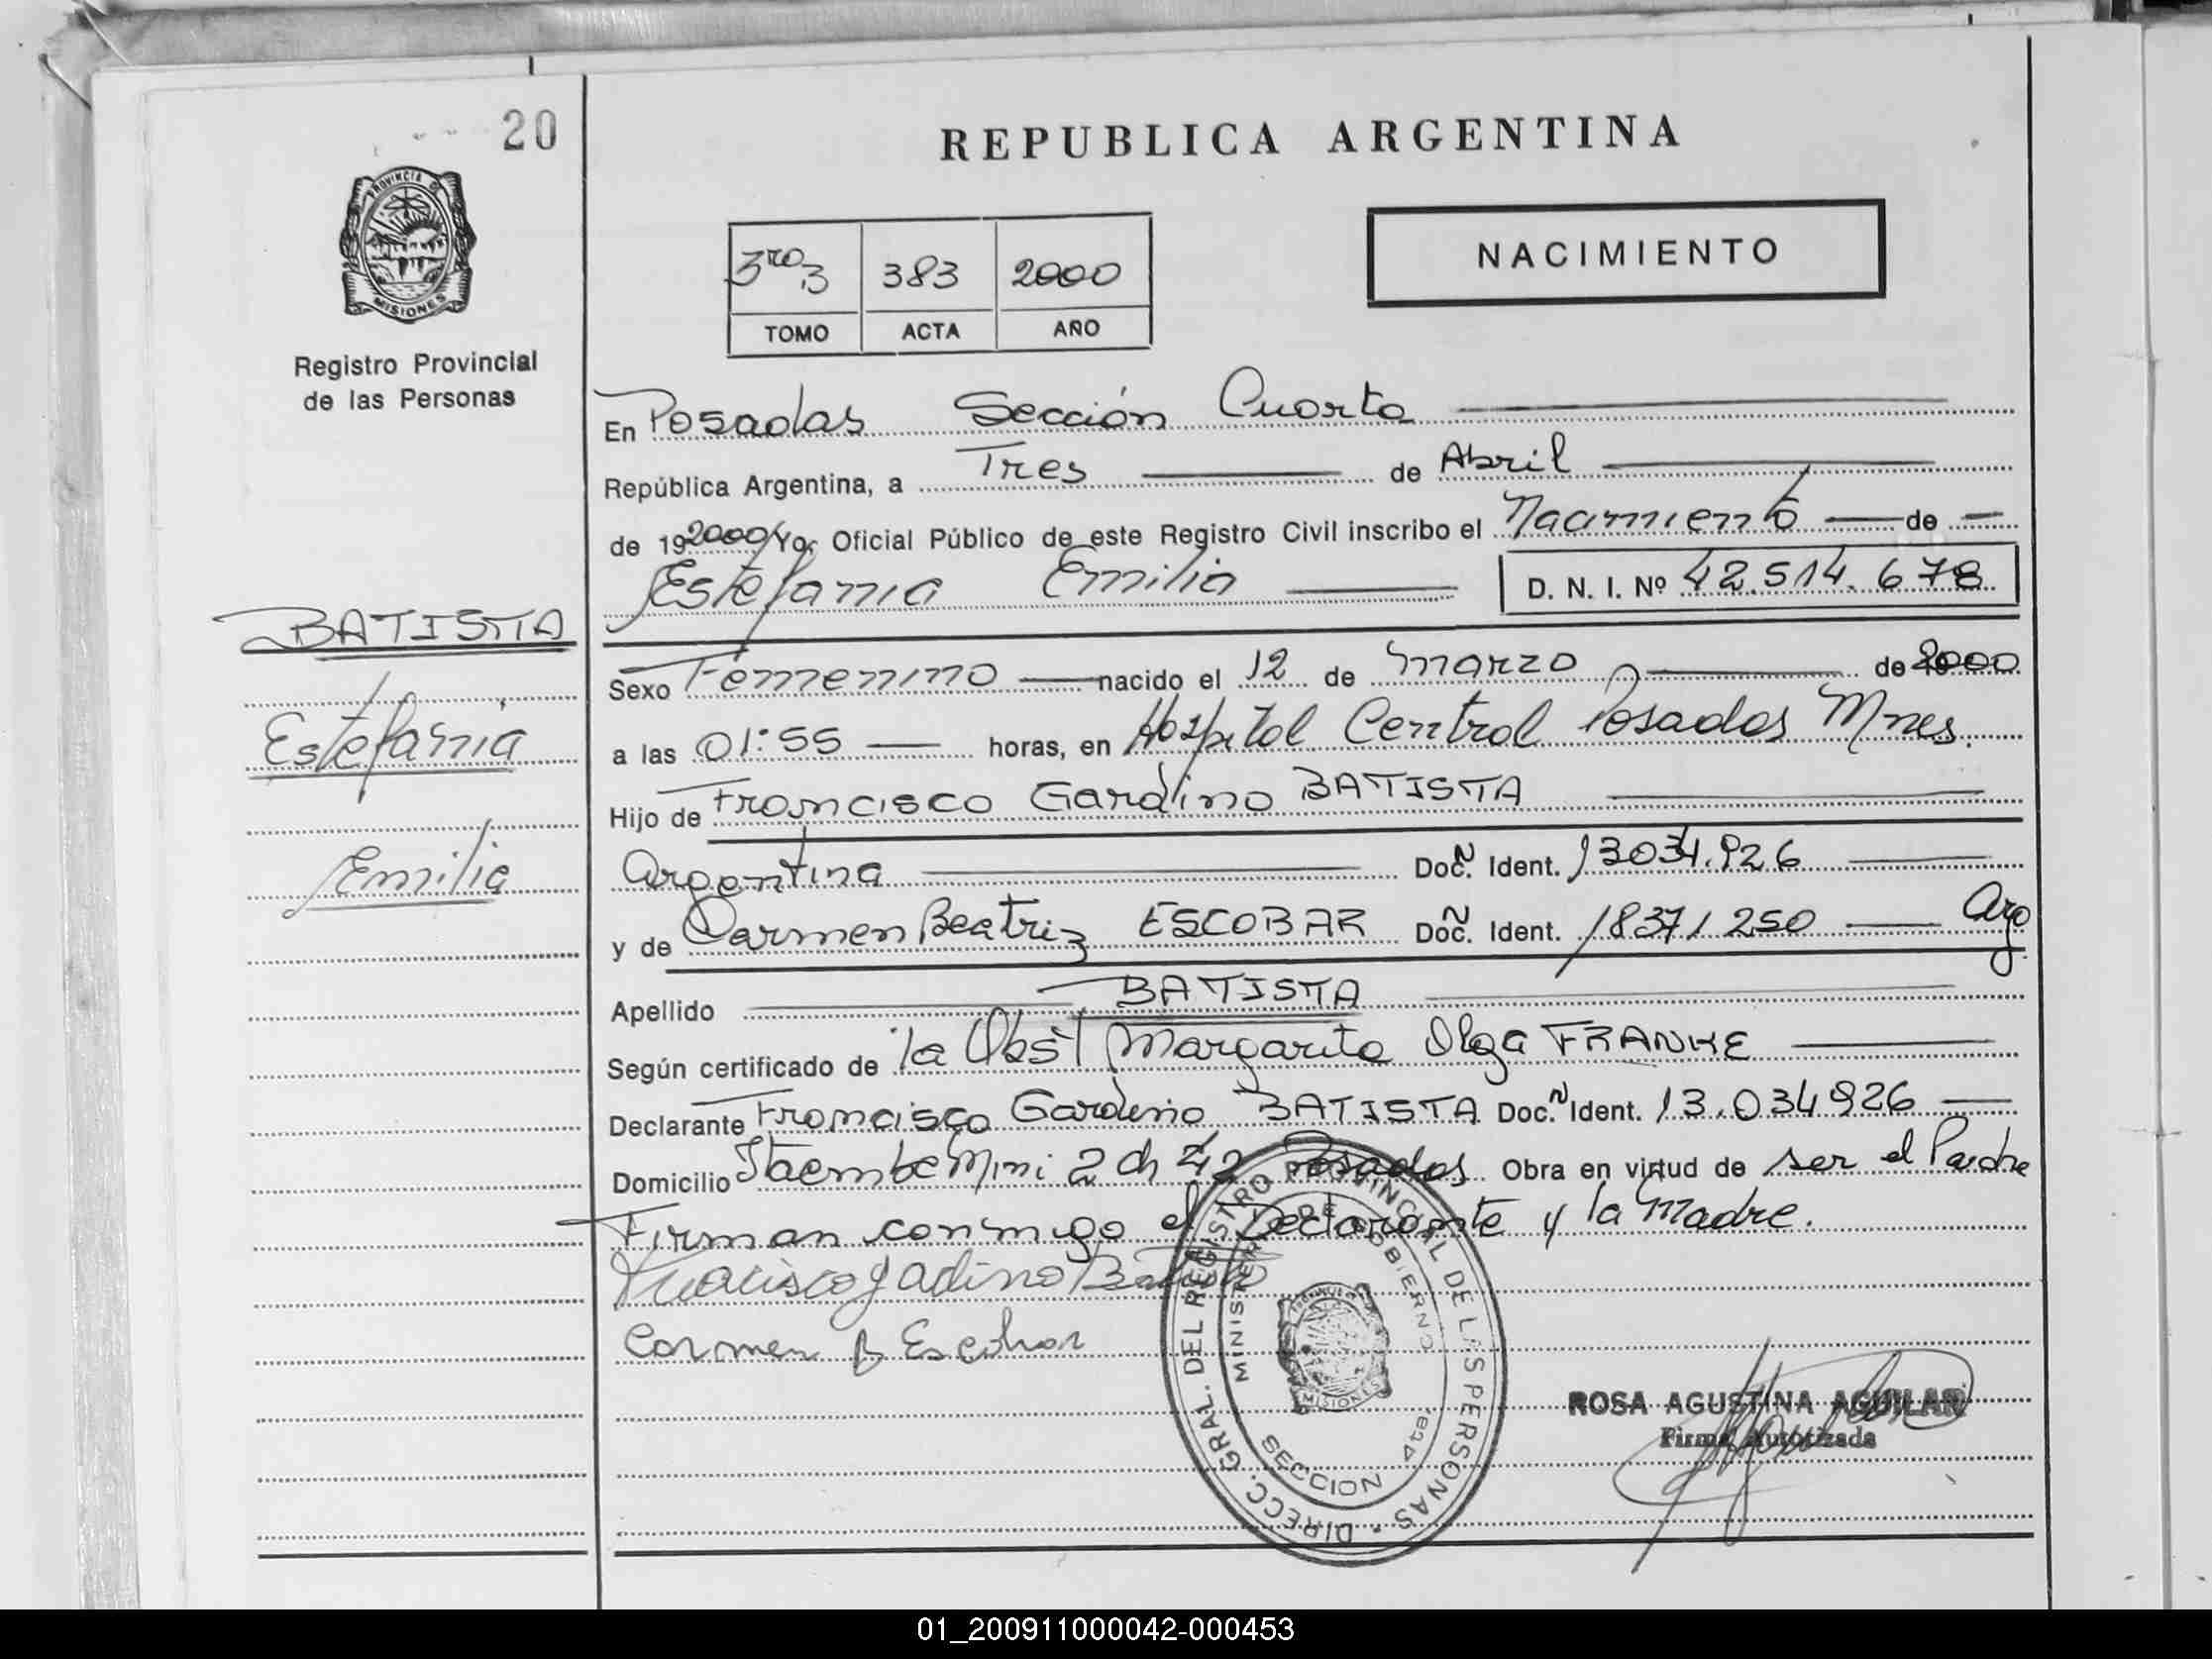 20
REPUBLICA ARGENTINA
PROVINCIA DE MISIONES
Registro Provincial
de las Personas
3ro 3 383 2000
TOMO ACTA AÑO
NACIMIENTO
En Posadas Sección Cuarta
República Argentina, a Tres de Abril
de 19 2000 Yo, Oficial Público de este Registro Civil inscribo el Nacimiento de
Estefania Emilia D. N. I. Nº 42.514.678
BATISTA
Estefania
Emilia
Sexo Femenino nacido el 12 de Marzo de 2000
a las 01:55 horas, en Hospital Central Posadas Mnes.
Hijo de Francisco Gardino BATISTA
Argentina Doc. N Ident. 13034.926
y de Carmen Beatriz ESCOBAR Doc. N Ident. 18371250 Arg
Apellido BATISTA
Según certificado de la Obst Margarita Olga FRANKE
Declarante Francisco BATISTA Doc. N Ident. 13.034926
Domicilio Itaembe Mini 2 ch 42 Posadas Obra en virtud de ser el Padre
Firman conmigo el Declarante y la Madre.
Francisco gardino Batista
Carmen B Escobar
DIRECC. GRAL. DEL REGISTRO PROVINCIAL DE LAS PERSONAS
MINISTERIO DE GOBIERNO
MISIONES
SECCION 4ta.
ROSA AGUSTINA AGUILAR
Firma Autorizada
01_200911000042-000453